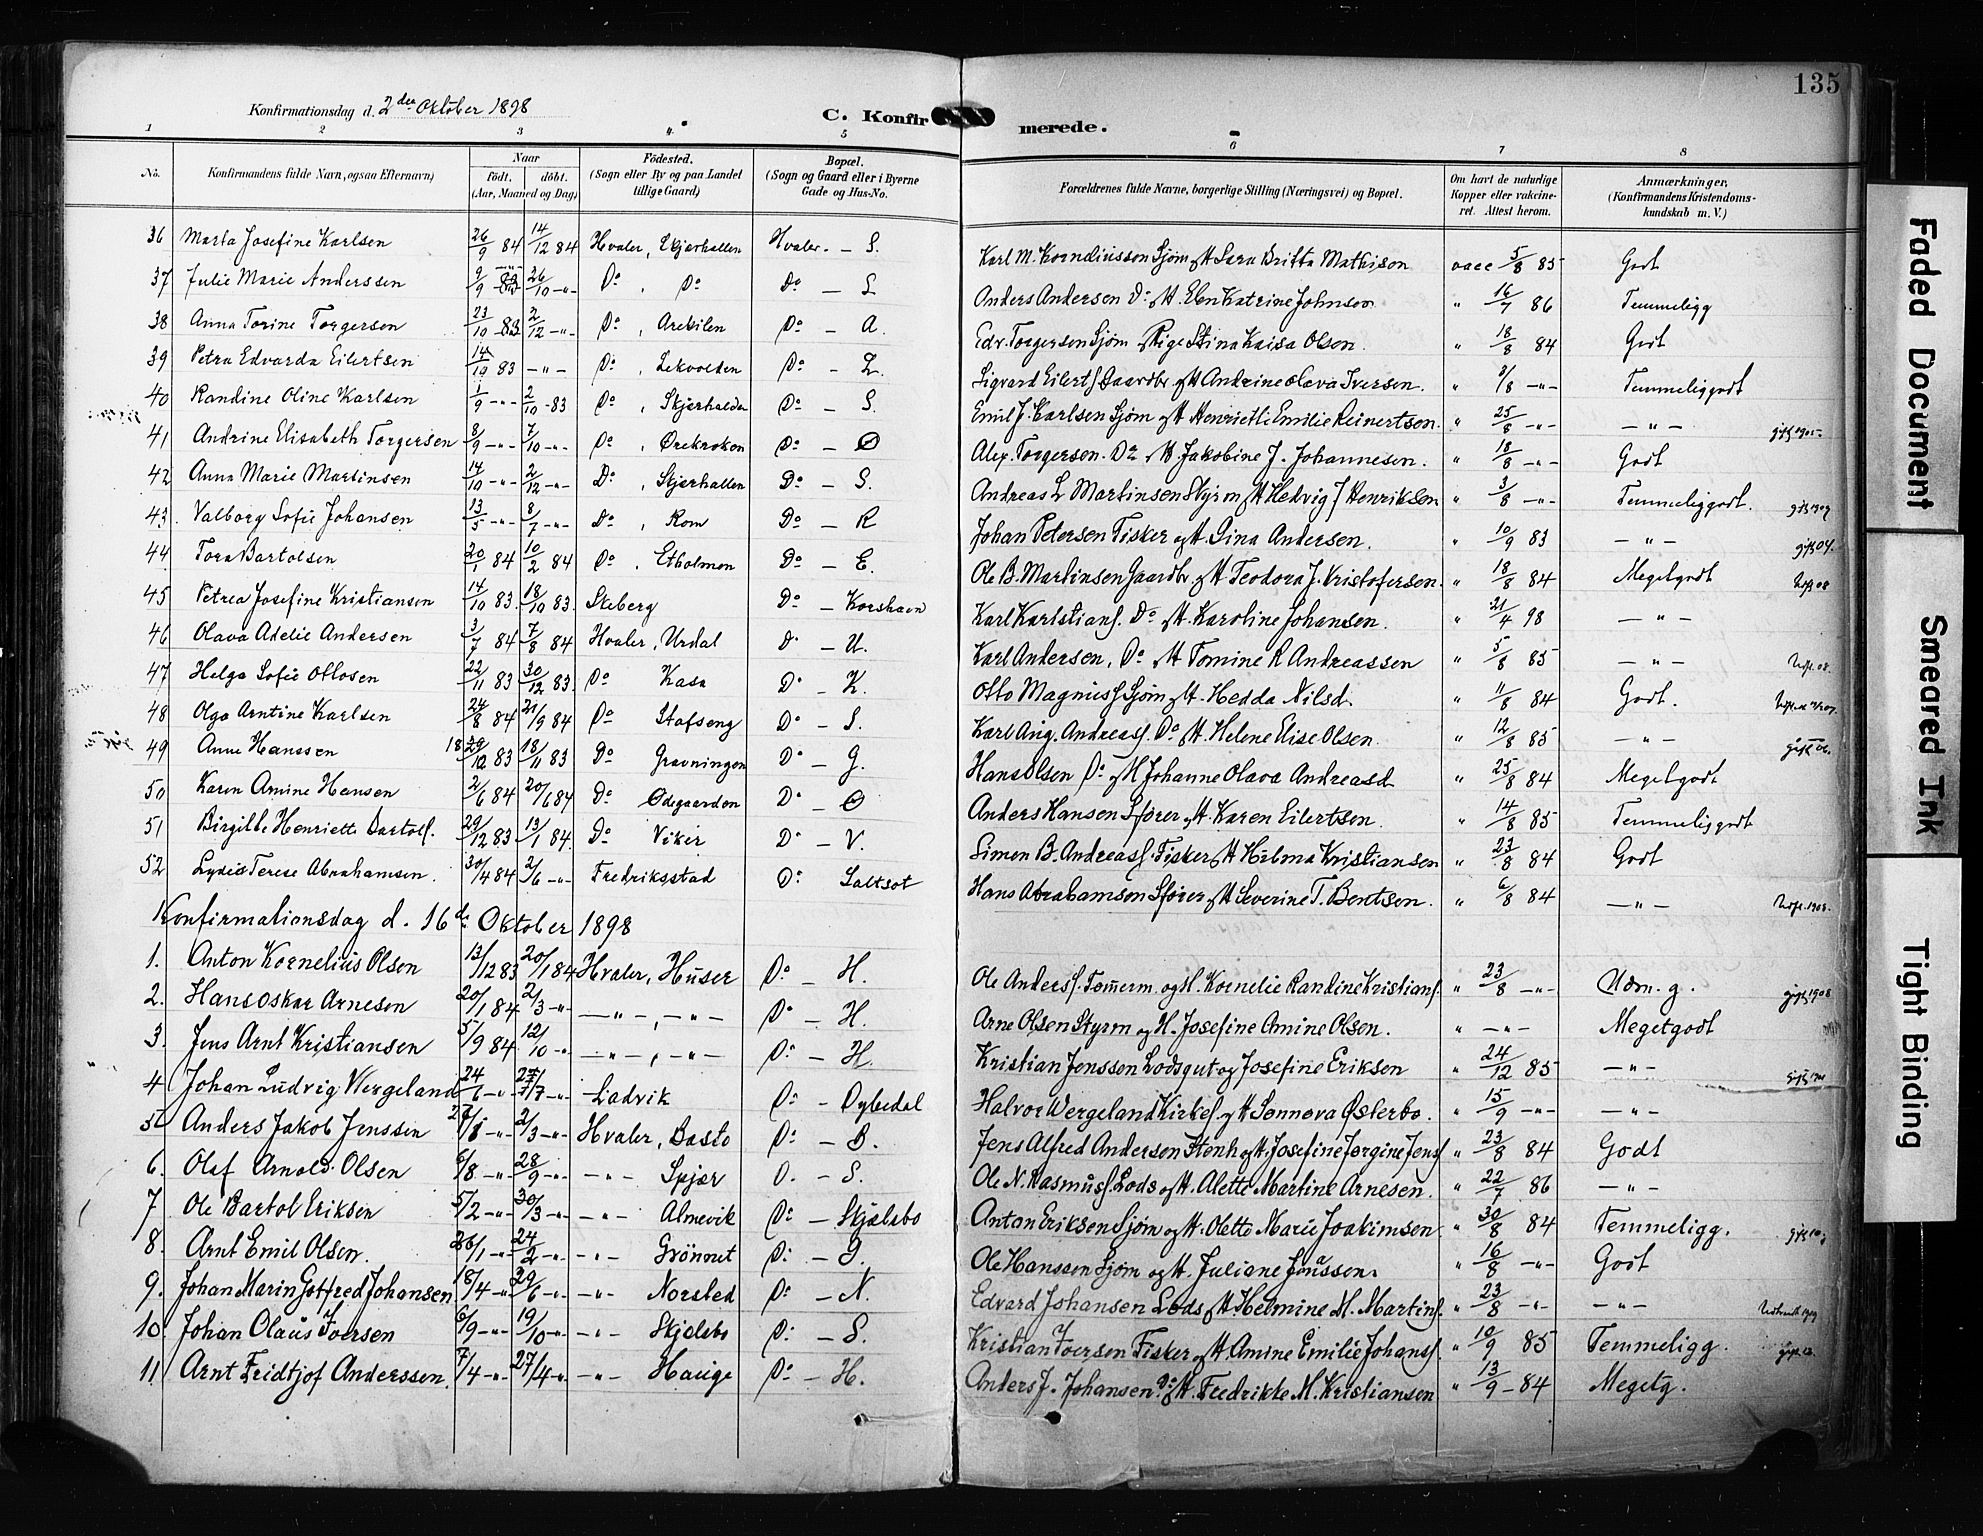 135
Konfirmationsdag d. 2den Oktober 1898
C. Konfirmerede.
1 2 3 4 5 6 7 8
No. Konfirmandens fulde Navn, ogsaa Efternavn) Naar født. døbt. (Aar, Maaned og Dag) Fødested. (Sogn eller By og paa Landet tillige Gaard) Bopæl. (Sogn og Gaard eller i Byerne Gade og Hus-No. Forældrenes fulde Navne, borgerlige Stilling (Næringsvei) og Bopæl. Om havt de naturlige Kopper eller vaccineret. Attest herom. Anmærkninger, (Konfirmandens Kristendomskundskab m. V.)
36 Marta Josefine Karlsen 26/9 84 14/12 84 Hvaler, Skjærhallen Hvaler. – S. Karl M. Korneliusson Sjøm og H. Sara Britta Mathison vacc 5/8 85 Godt
37 Julie Marie Anderssen 9/9 83 26/10 -"- Do, Do Do – S Anders Andersen Do og H. Elen Katrine Johnson " 16/7 86 Temmeligg
38 Anna Torine Torgersen 23/10 83 2/12 -"- Do, Arekilen Do – A. Edv. Torgersen Sjøm Pige Stina Kaisa Olsen. " 18/8 84 Godt
39 Petra Edvarda Eilertsen 14/10 83 -"- Do, Lekvolden Do – L. Sigvard Eilerts Gaardbr og H. Andrine Olava Iversen. " 3/8 -"- Temmeliggodt
40 Randine Oline Karlsen 1/9 -"- 2/10 -83 Do, Skjærhalden Do – S. Emil J. Karlsen Sjøm og H. Henriette Emilie Reinertsen. " 25/8 -"- -"- gift 1905
41 Andrine Elisabeth Torgersen 8/9 -"- 7/10 -"- Do, Ørekroken Do – Ø Alex. Torgersen. Do og H. Jakobine J. Johannesen. " 18/8 -"- Godt
42 Anna Marie Martinsen 14/10 -"- 2/12 -"- Do, Skjærhallen Do – S. Andreas L Martinsen Styrm og H Hedvig J Henriksen " 3/8 -"- Temmeliggodt.
43. Valborg Sofie Johansen 13/5 -"- 8/7 -"- Do, Rom Do – R Johan Petersen Fisker og H. Gina Andersen. " 10/9 83 -"- gift 04.
44 Tora Bartolsen 20/1 84 10/2 84 Do, Etholmen Do – E. Ole B. Martinsen Gaardbr. og H Teodora J. Kristofersen. " 18/8 84 Megetgodt
45 Petrea Josefine Kristiansen 14/10 83. 18/10 83. Skeberg Do – Korshavn Karl Karlstians. Do og H. Karoline Johansen. " 21/4 98 -"-
46 Olava Adelie Andersen 3/7 84 7/8 84 Hvaler, Urdal D" – U. Karl Andersen, Do og H Tomine R Andreassen " 5/8 85 -"-
47 Helga Sofie Ottosen 22/11 83 30/12 83. Do Kasa D" – K. Otto Magnuss Sjøm og H. Hedda Nilsd. " 11/8 84 Godt.
48 Olga Arntine Karlsen 24/8 84 21/9 84 Do Stafseng D" – S. Karl Aug. Andreass. Do og H. Helene Elise Olsen. " 12/8 85 -"- gift 06.
49 Anne Hanssen 29/10 83 18/11 83 Do Gravningen D" – G. Hans Olsen Do og H Johanne Olava Andreasd " 25/8 84 Megetgodt
50 Karen Amine Hansen 2/6 84 20/6 84 Do Ødegaarden D" – Ø Anders Hansen Sfører og H. Karen Eilertsen. " 14/8 85 Temmeliggodt
51 Birgitte Henriette Bartols. 29/12 83 13/1 84. Do Viker D" – V. Simen B. Andreass. Fisker og H Hilma Kristiansen " 23/8 84 Godt
52 Lydia Terese Abrahamsen. 30/4 84 2/6 -"- Fredriksstad D" Saltsot Hans Abrahamson Sfører og H Severine T. Bentsen. " 6/8 84 -"-
Konfirmationsdag d. 16de Oktober 1898
1. Anton Kornelius Olsen 13/12 83 20/1 84 Hvaler, Huser Do – H. Ole Anderss. Tømerm. og H. Kornelie Randine Kristians. " 23/8 -"- Udm. g. gift 1908
2. Hans Oskar Arnesen 20/1 84 2/3 -"- -"-, -"- Do – H. Arne Olsen Styrm og H. Josefine Amine Olsen. " -"- Megetgodt
3. Jens Arnt Kristiansen 5/9 84 12/10 -"- -"-, -"- Do – H. Kristian Jenssen Lodsgut og Josefine Eriksen " 24/12 85 -"-
4 Johan Ludvig Wergeland 24/6 -"- 27/7 -"- Ladvik Do – Dybedal Halvor Wergeland Kirkes. og H Sønnøva Østerbo. " 15/9 -"- -"-
5 Anders Jakob Jenssen 2/3 -"- Hvaler, Basto Do – B. Jens Alfred Andersen Stenh og H. Josefine Jørgine Jens " 23/8 84 Godt
6. Olaf Arnold Olsen 6/8 -"- 28/9 -"- -"- Spjær D. – S. Ole N. Rasmuss Lods og H. Alette Martine Arnesen. " 22/7 86 -"-
7 Ole Bartol Eriksen 5/2 -"- 30/3 -"- -"- Almevik Do – Skjælsbo Anton Eriksen Sjøm og H. Olette Marie Joakimsen " 30/8 84 Temmeligg.
8. Arnt Emil Olsen. 26/1 -"- 24/2 -"- -"- Grönnet Do – G. Ole Hanssen Sjøm og H. Juliane Jenssen. " 16/8 -"- Godt
9. Johan Marin Gotfred Johansen 18/4 -"- 29/6 -"- -"- Norsted Do – N. Edvard Johansen Lods og H. Helmine M. Martins. " 23/8 -"- -"-
10. Johan Olaus Iversen 6/9 -"- 19/10 -"- -"- Skjelsbo Do – S. Kristian Iversen Fisker og H. Amine Emilie Johanss. " 10/9 85 Temmeligg.
11. Arnt Fridtjof Anderssen. 7/4 -"- 27/4 -"- -"- Hauge Do – H. Anders J. Johansen Do og H. Fredrikke M. Kristiansen " 13/9 -84 Megetg.
Faded Document
Smeared Ink
Tight Binding